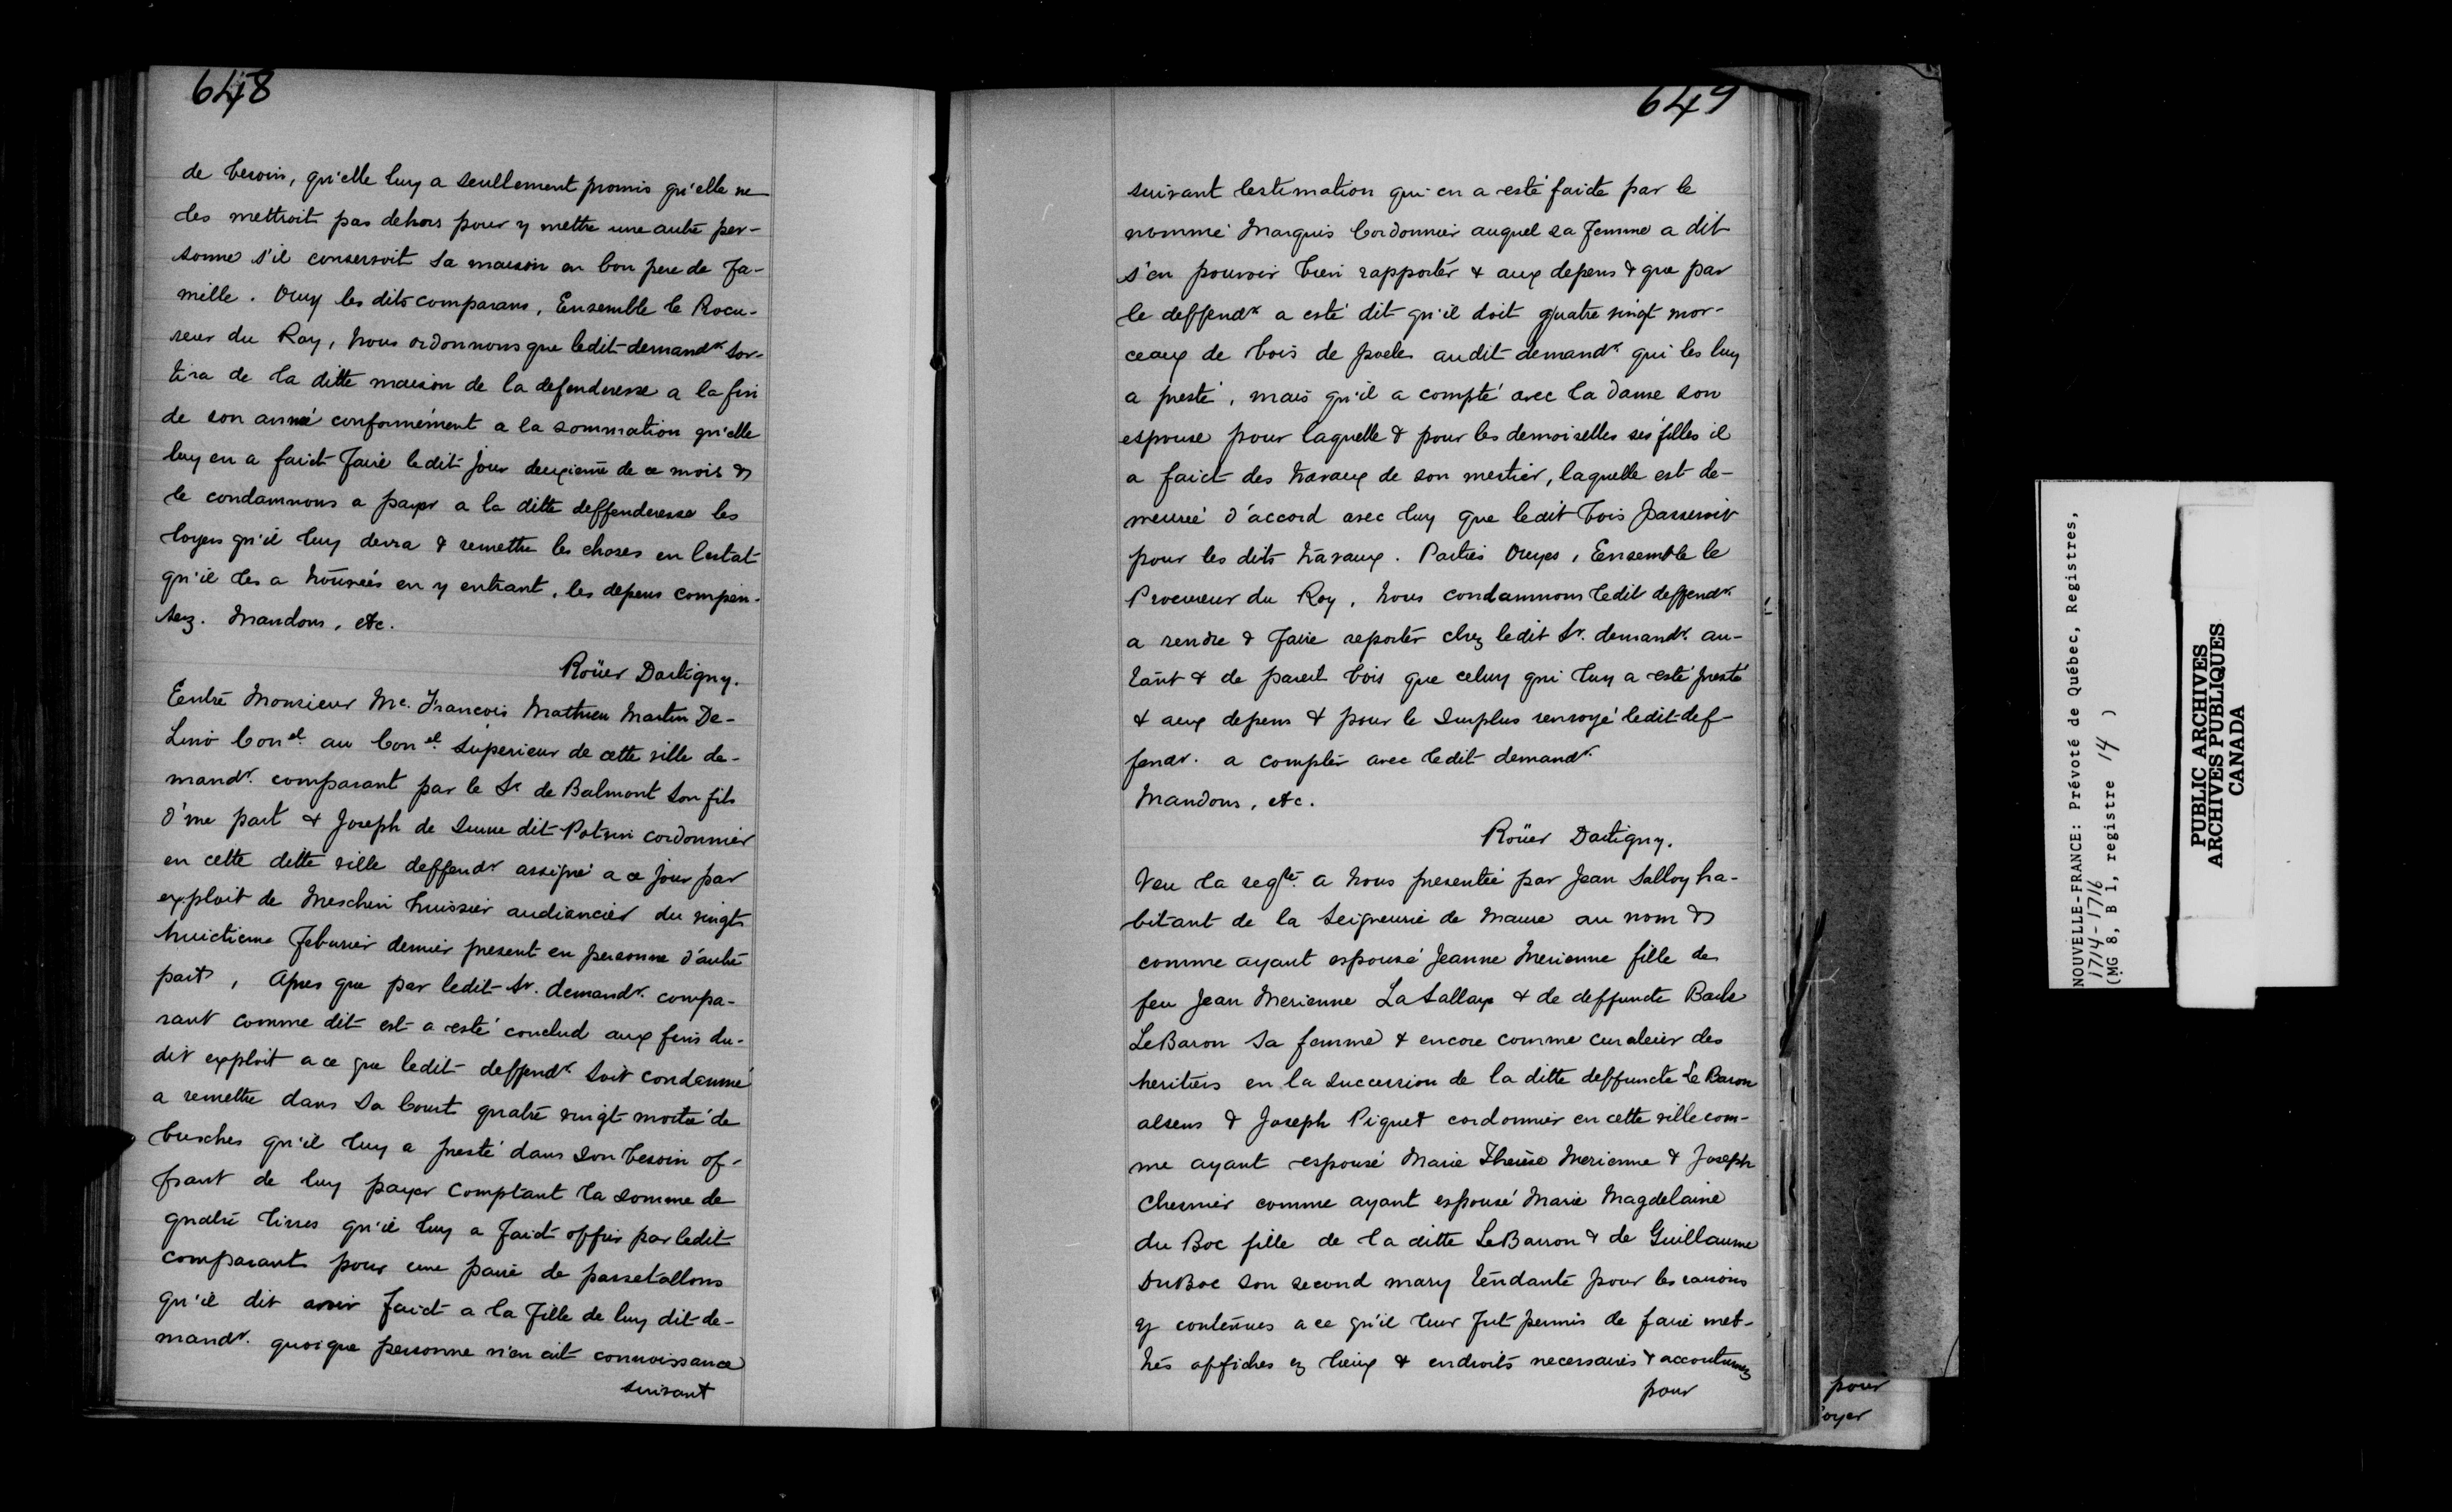 648
de besoin, qu'elle luy a seullement promis qu'elle ne
les mettroit pas dehors pour y mettre une autre per-
sonne s'il conservoit sa maison en bon pere de fa-
mille. Ouy les dits comparans, Ensemble le Rocu-
reur du Roy, nous ordonnons que ledit demandr. sor-
tira de la ditte maison de la defenderesse a la fin
de son anneé conformément a la sommation qu'elle
luy en a faict faire ledit jour deuxieme de ce mois &
le condamnons a payer a la ditte deffenderesse les
loyers qu'il luy devra & remettre les choses en lestat
qu'il les a trouveés en y entrant, les depens compen-
sez. Mandons, etc.
Roüer Dartigny.
Eentre Monsieur Me. Francois Mathieu Martin De-
Lino Conel. au Conel. Superieur de cette ville de-
mandr. comparant par le Sr de Balmont son fils
d'une part & Joseph de Sune dit Potvin cordonnier
en cette ditte ville deffendr assigné a ce jour par
exploit de Meschin huissier audiancier du vingt
huictieme Feburier dernier present en personne d'autre
part, Apres que par ledit Sr. demandr. compa-
rant comme dit est a esté conclud aux fins du-
dit exploit a ce que ledit deffendr. soit condamné
a remettre dans sa Court quatre vingt moitié de
busches qu'il luy a presté dans son besoin of-
frant de luy payer comptant la somme de
quatre livres qu'il luy a faict offrir par ledit
comparant pour une paire de passetallons
qu'il dit avoir faict a la fille de luy dit de-
mandr. quoique personne n'en ait connoissance
suivant
649
suivant lestimation qui en a esté faite par le
nommé Marquis Cordonnier auquel sa femme a dit
s'en pouvoir bien rapporter & aux depens & que par
le deffendr a esté dit qu'il doit quatre vingt mor-
ceaux de bois de poele audit demandr. qui les luy
a presté, mais qu'il a compté avec la dame son
espouse pour laquelle & pour les demoiselles ses filles il
a faict des travaux de son mestier, laquelle est de-
meureé d'accord avec luy que ledit bois passeroit
pour les dits travaux. Parties Ouyes, Ensemble le
Procureur du Roy, nous condamnons ledit deffendr.
a rendre & faire reporter chez ledit Sr. demandr. au-
tant & de pareil bois que celuy qui luy a esté presté
& aux depens & pour le surplus renvoyé ledit def-
fendr. a compter avec ledit demandr.
Mandons, etc.
Roüer Dartigny.
Veu la reqte. a nous presenteé par Jean Salloy ha-
bitant de la Seigneurie de Maure au nom &
comme ayant espousé Jeanne Merienne fille de
feu Jean Merienne LaSallaye & de deffuncte Barbe
LeBaron sa femme & encore comme curateur des
heritiers en la succession de la ditte deffuncte Le Baron
absens & Joseph Piquet cordonnier en cette ville com-
me ayant espousé Marie Therèse Merienne & Joseph
Chermier comme ayant espousé Marie Magdelaine
du Boc fille de la ditte LeBarron & de Guillaume
DuBoc son second mary tendante pour les raisons
y contenues a ce qu'il leur fut permis de faire met-
tres affiches ez lieux & endroits necessaires & accoutumez
pour
pour
oyer
NOUVELLE-FRANCE: Prévoté de Québec, Registres,
1714-1716
(MG 8, B 1, registre 14 )
PUBLIC ARCHIVES
ARCHIVES PUBLIQUES
CANADA